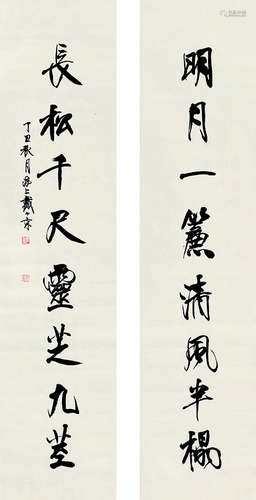 明月一簾清風半榻
長松千尺靈芝九莖
丁丑秋月